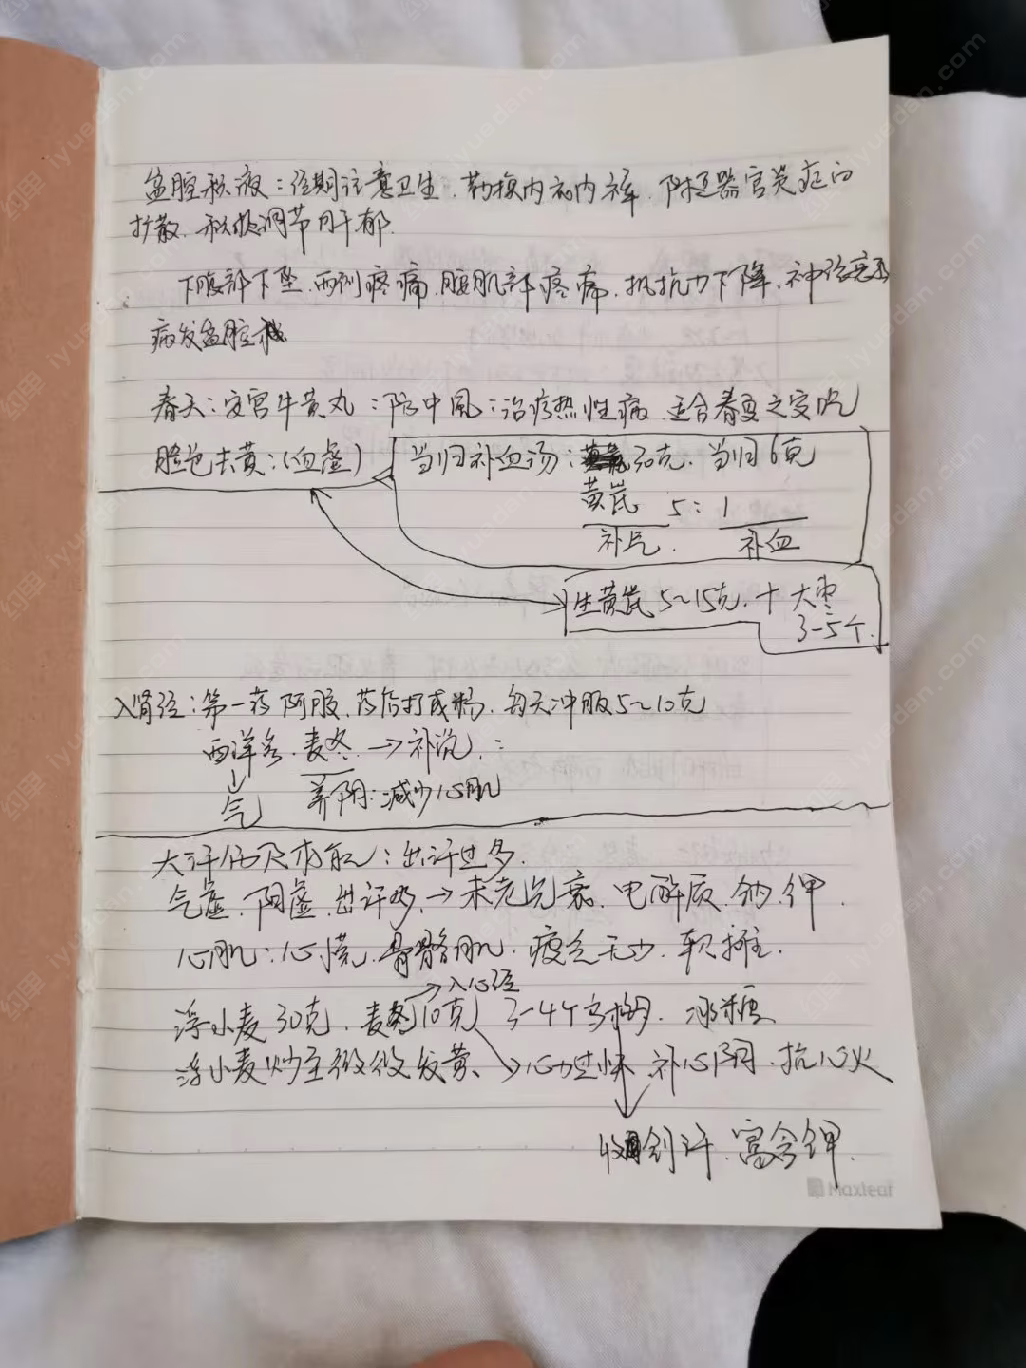 盆腔积液：经期注意卫生．勤换内衣内裤．附近器官炎症的
扩散．积极调节肝郁．
下腹部下坠．两侧疼痛．腰肌部疼痛．抵抗力下降．神经衰弱
病发盆腔
春天：安宫牛黄丸：防中风：治疗热性病 适合春夏之交吃
脸色去黄：(血虚) 当归补血汤： 30克．当归6克
黄芪 5：1
补气． 补血
生黄芪 5~15克．+ 大枣
3-5个．
入肾经：第一药 阿胶．药店打成粉．每天冲服5~10克
西洋参．麦冬．→补沉．：
气 养阴：减少心肌
大汗伤及本能：出汗过多．
气虚．阴虚．出汗多．→未老先衰．电解质．钠．钾．
心肌：心慌．骨骼肌．疲乏无力．软摊．
→入心经
浮小麦30克．麦冬10克 3-4个乌梅．冰糖
浮小麦炒至微微发黄．→心动过快 补心阴．抗心火
收 汗．富含钾．
Maxleaf
iyuedan.com
约单